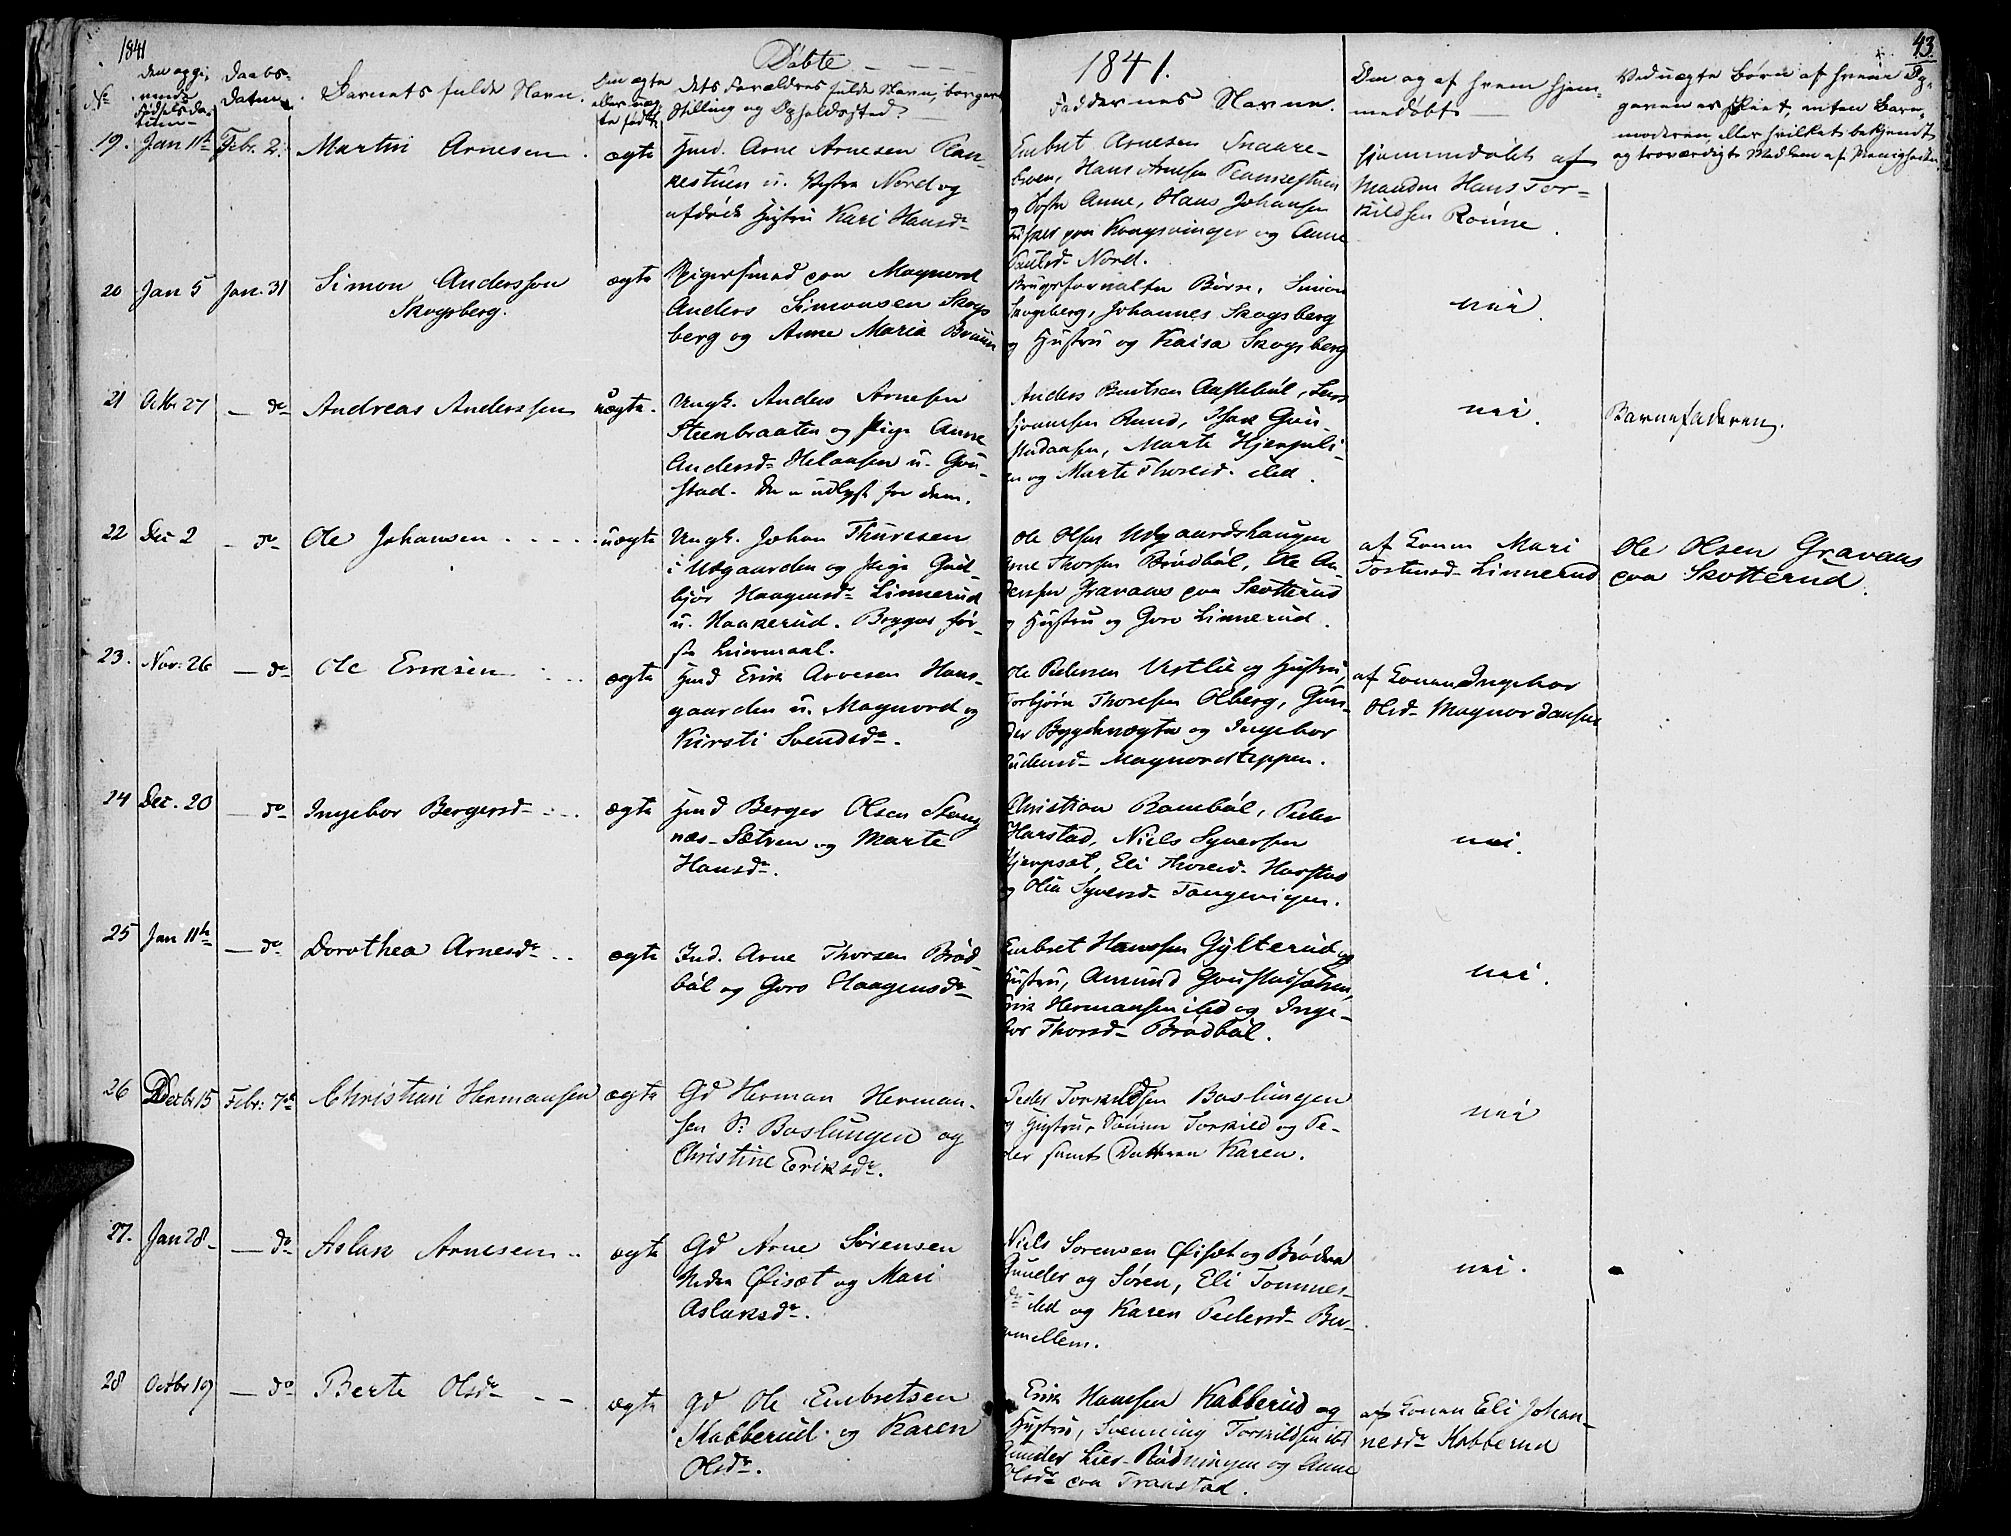 1841
Døbte
1841.
43
No
Daabs-
Datum
Barnets fulde Navn.
dets Forældres fulde Navn, borgerl.
Stilling og Opholdssted?
Faddernes Navne.
Om og af hvem hjem-
medøbt
Ved uægte Børn af hvem Op-
gaven er skeet, enten Barne-
moderen eller hvilket bekjendt
og troværdigt Medlem af Menigheden
19. Jan 11te Febr. 2. Martin Arnesen. ægte
Huusmd. Arne Arnesen
u. Vestre Nord og
afdøde Hustru Kari Hansdr
Embret Arnesen Snaare-
Hans Arnesen
og Søster Anne, Hans Johansen
paa Kongsvinger og Anne
Nord.
hjemmedøbt af
Manden Hans Tor-
kildsen Roüne.
20 Jan 5 Jan. 31 Simon Andersson
Skogsberg.
ægte
Spigersmed paa Magnord
Anders Simonsen Skogs
berg og Anne Maria Bruun
Brugsforvalter Børse, Simon
Skogsberg, Johannes Skogsberg
og Hustru og Kaisa Skogsberg
nei.
21 Octbr 27 — do Andreas Anderssen uægte.
Ungk. Anders Arnesen
Steenbraaten og Pige Anne
Andersd- Helaasen u. Gou-
stad. Der er udlyst for dem.
Anders Bentsen
Marte
og Marte Thoresd- ibd.
nei.
Barnefaderen.
22 Dec 2 — do Ole Johansen uægte
Ungk. Johan Thuresen
i Udgaarden og Pige Gul-
bjør Haagensd- Linnerud
u. Haakerud. Begges før-
ste Leiermaal.
Ole Olsen Udgaardshaugen
Arne Thorsen Brødbøl, Ole An-
dersen Gravaas paa Skotterud
og Hustru og Goro Linnerud.
af Konen Mari
Tostensd- Linnerud
Ole Olsen Gravaas
paa Skotterud.
23. Nov: 26 — do Ole Eriksen ægte
Huusmd Erik Arvesen Hans-
gaarden u. Magnord og
Kirsti Svendsdr.
Ole Pedersen Vestlie og Hustru,
Torbjørn Thoresen Olberg, Gun-
der Bygdenægte og Ingebor
Magnordseppen.
af Konen Ingebor
Olsd- Magnordaasen
24 Dec. 20 — do Ingebor Bergersd- ægte
Huusmd Berger Olsen Stang
næs-Sætren og Marte
Hansdr.
Christian Rambøl, Peder
Harstad, Niels Syversen
Hjerpsæt, Eli Thoresd- Harstad
og Olia Syversd- Tangevigen.
nei.
25 Jan 11te — do Dorothea Arnesdr ægte
Ind. Arne Thorsen Brød-
bøl og Goro Haagensdr
Embret Hanssen Gylterud og
Hustru, Amund Goustadsæteren,
Erik Hermansen ibd og Inge-
bor Thorsd- Brødbøl.
nei.
26 Decbr 15 Febr: 7de Christian Hermansen ægte
Gd Herman Herman-
sen S: Baslungen og
Christine Eriksdr.
Peder Torkildsen Baslungen
og Hustru, Sønnen Torkild og Pe-
der samt Datteren Karen.
nei
27. Jan 28 — do Aslak Arnesen ægte
Gd Arne Sørensen
Nedre Øisæt og Mari
Aslaksdr.
Niels Sorensen Øisæt og Brødre
Gunder og Søren, Eli Tommes-
dr ibd og Karen Pedersd- Bu-
mellem.
nei.
28 Octbr 19 — do Berte Olsdr ægte
Gd Ole Embretsen
Kabberud og Karen
Olsdr.
Erik Hanssen Kabberud og
Hustru, Svenning Torkildsen ibd
Gunder Lier-Rødningen og Anne
Olsdr paa Transtad.
af Konen Eli Johan-
nesdr Kabberud